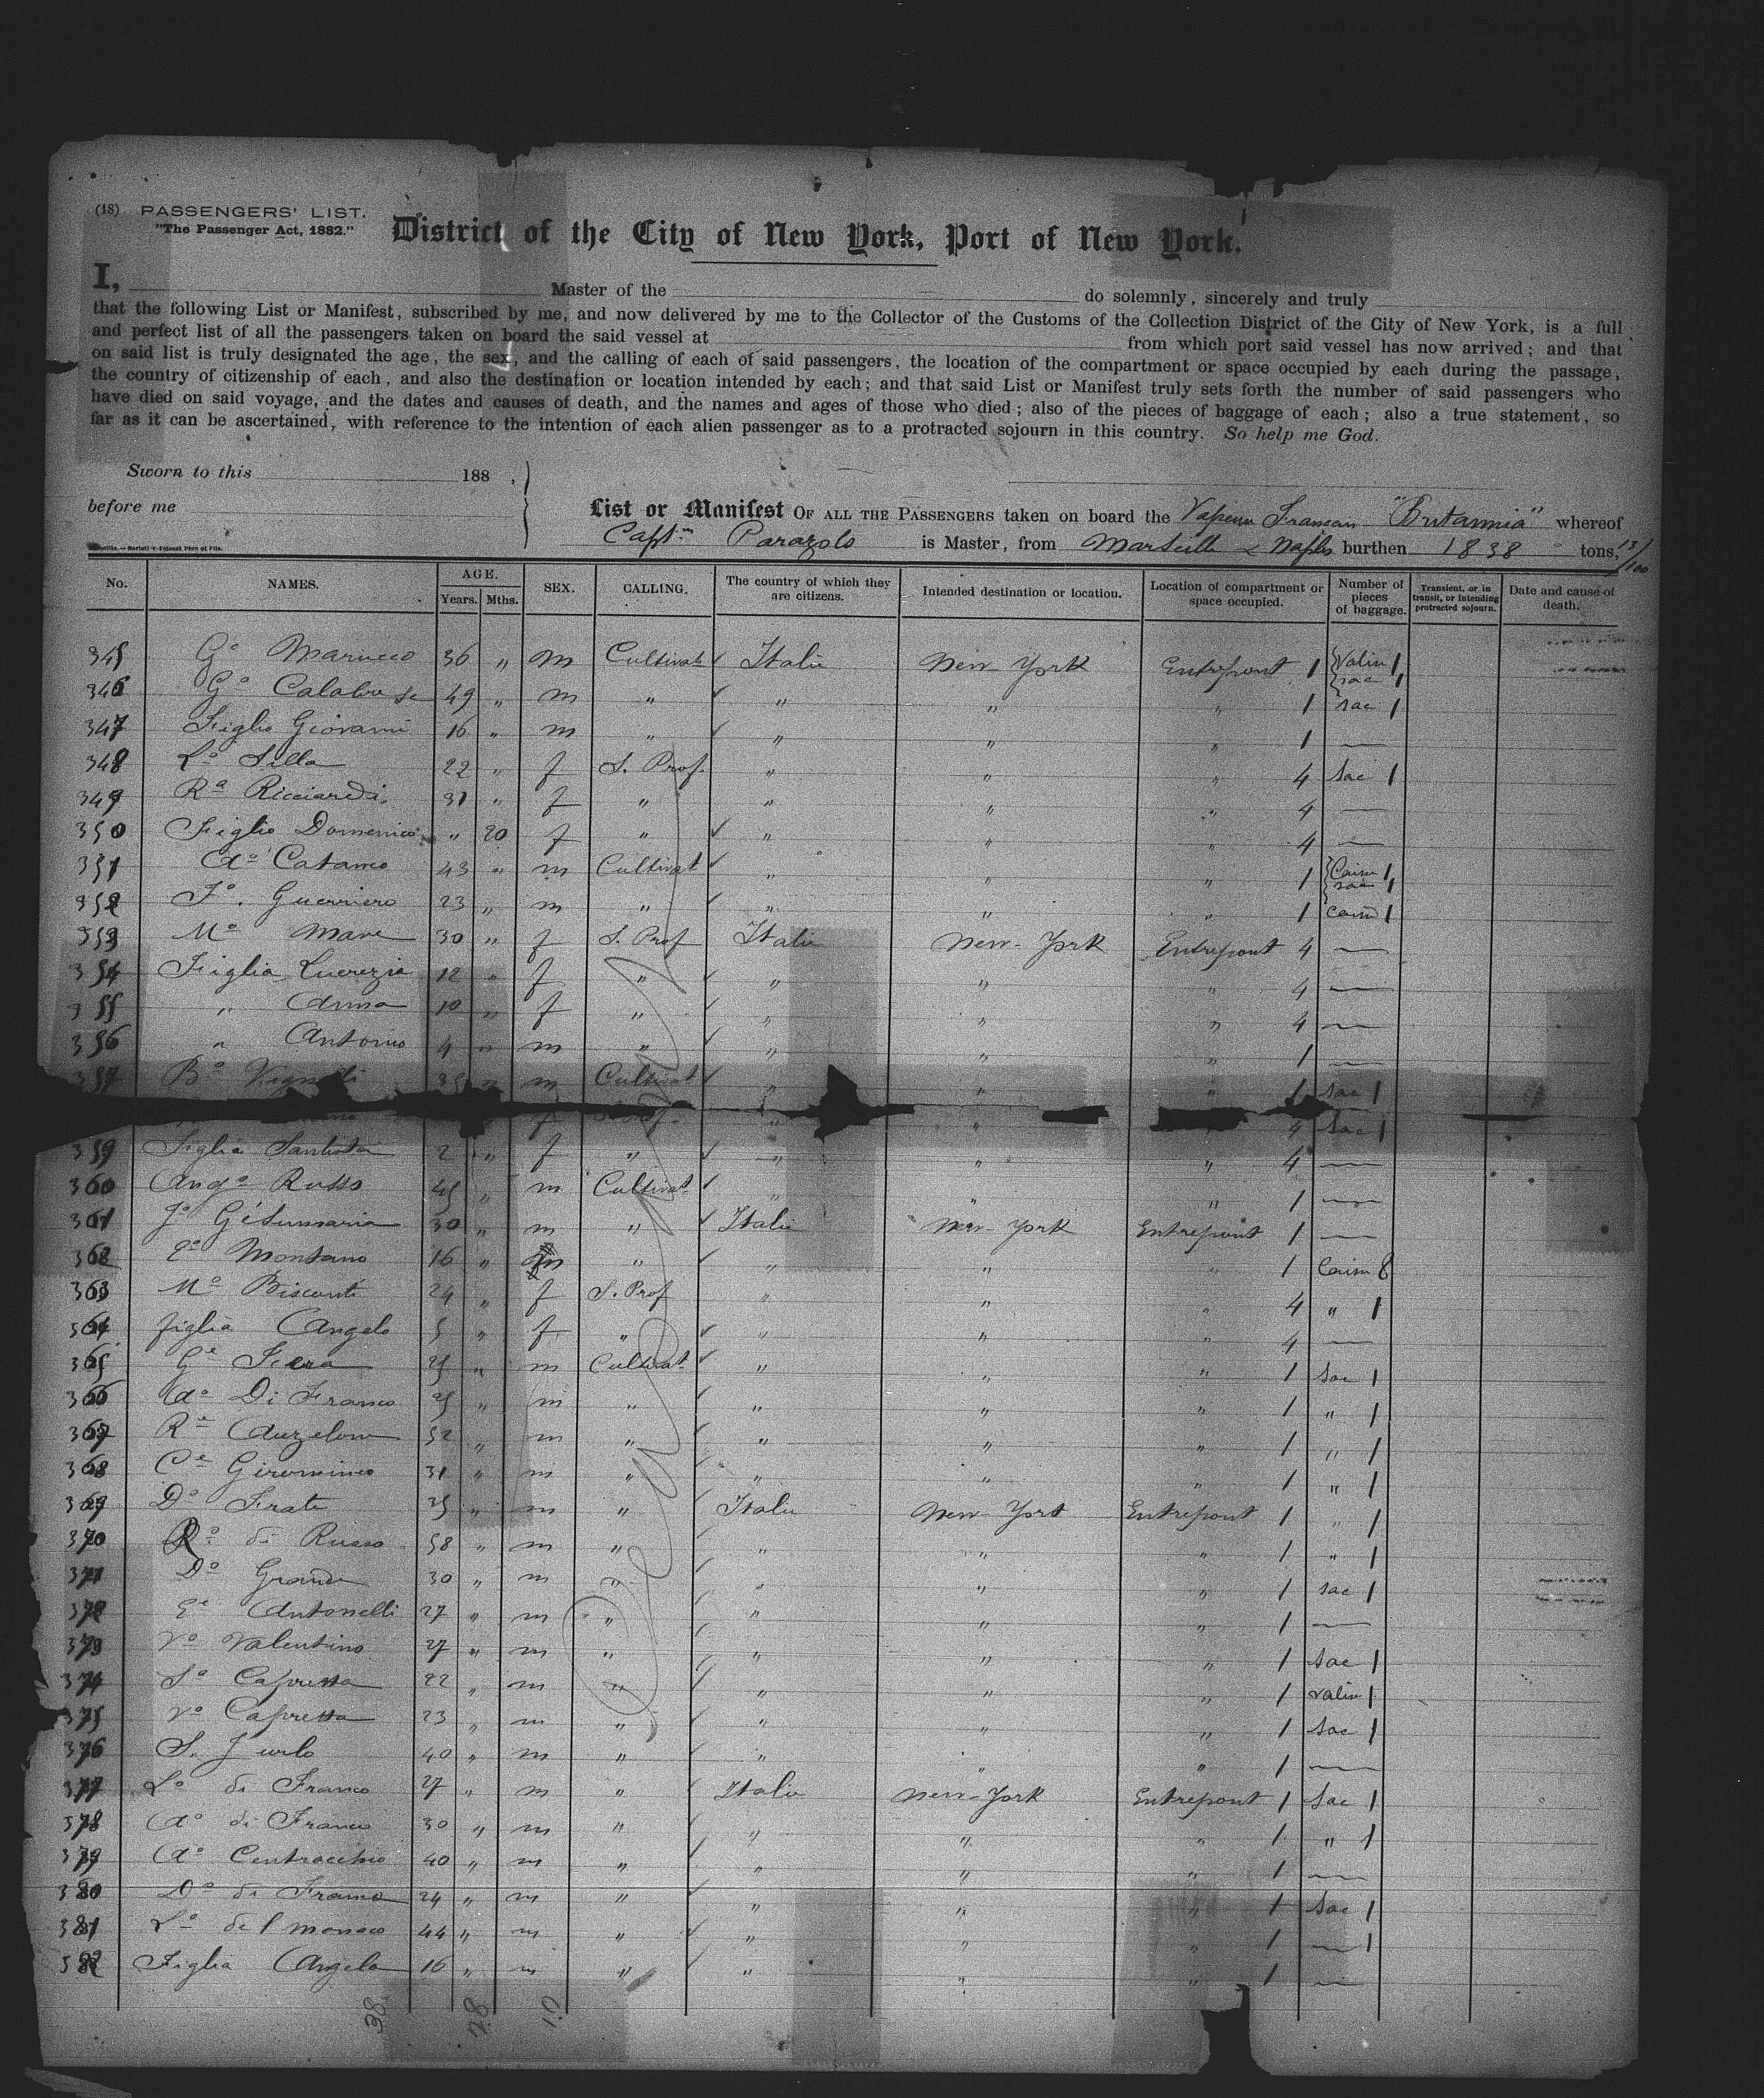 (18) PASSENGERS' LIST.
"The Passenger Act, 1882."
District of the City of New York, Port of New York.
I, Master of the do solemnly, sincerely and truly
that the following List or Manifest, subscribed by me, and now delivered by me to the Collector of the Customs of the Collection District of the City of New York, is a full
and perfect list of all the passengers taken on board the said vessel at from which port said vessel has now arrived; and that
on said list is truly designated the age, the sex, and the calling of each of said passengers, the location of the compartment or space occupied by each during the passage,
the country of citizenship of each, and also the destination or location intended by each; and that said List or Manifest truly sets forth the number of said passengers who
have died on said voyage, and the dates and causes of death, and the names and ages of those who died; also of the pieces of baggage of each; also a true statement, so
far as it can be ascertained, with reference to the intention of each alien passenger as to a protracted sojourn in this country. So help me God.
Sworn to this 188 ,
before me
List or Manifest OF ALL THE PASSENGERS taken on board the Vapeur Francais "Britannia" whereof
Captn Parazolo is Master, from Marseille & Naples burthen 1838 tons, 13/100
No. NAMES. AGE. Years. Mths. SEX. CALLING. The country of which they are citizens. Intended destination or location. Location of compartment or space occupied. Number of pieces of baggage. Transient, or in transit, or intending protracted sojourn. Date and cause of death.
345 Go Marucco 36 " m Cultivat Italie New-York Entrepont 1 Valise 1 sac 1
346 Go Calabrese 49 " m " " " " 1 sac 1
347 Figlio Giovanni 16 " m " " " " 1 —
348 Lo Silla 22 " f S. Prof. " " " 4 sac 1
349 Ra Ricciardi 31 " f " " " " 4 —
350 Figlio Domenico " 20 f " " " " 4 —
351 Ao Cataneo 43 " m Cultivat " " " 1 Caisse 1 sac 1
352 Fo. Guerriero 23 " m " " " " 1 caisse 1
353 Mo Mare 30 " f S. Prof Italie New-York Entrepont 4 —
354 Figlia Lucrezia 12 " f " " " " 4 —
355 " Anna 10 " f " " " " 4 —
356 " Antonio 4 " m " " " " 1 —
357 Bo 35 " m Cultivat " " " 1 sac 1
f " " 4 sac 1
359 Figlia 2 " f " " " " 4 —
360 Ango Russo 45 " m Cultivat " " " 1 —
361 Go Gésumaria 30 " m " Italie New-York Entrepont 1 —
362 Eo Montano 16 " m " " " " 1 Caisse
363 Mo Bisconti 24 " f S. Prof " " " 4 " 1
364 figlia Angelo 5 " f " " " " 4 —
365 Ge 25 " m Cultivat " " " 1 sac 1
366 Ao Di Franco 25 " m " " " " 1 " 1
367 Re 52 " m " " " " 1 " 1
368 Ce Giromino 31 " m " " " " 1 " 1
369 Do Frate 35 " m " Italie New-York Entrepont 1 " 1
370 Ro di Russo 58 " m " " " " 1 " 1
371 Do Grande 30 " m " " " " 1 sac 1
372 Ee Antonelli 27 " m " " " " 1 —
373 Vo Valentino 27 " m " " " " 1 sac 1
374 So Capretta 22 " m " " " " 1 valise 1
375 Vo Capretta 23 " m " " " " 1 sac 1
376 S. Jurlo 40 " m " " " " 1 —
377 Lo di Franco 27 " m " Italie New-York Entrepont 1 sac 1
378 Ao di Franco 30 " m " " " " 1 " 1
379 Ao Centracchio 40 " m " " " " 1 —
380 Do di Franco 24 " m " " " " 1 sac 1
381 Lo del monaco 44 " m " " " " 1 — 1
382 Figlia Angela 16 " m " " " " 1 —
38 28 10